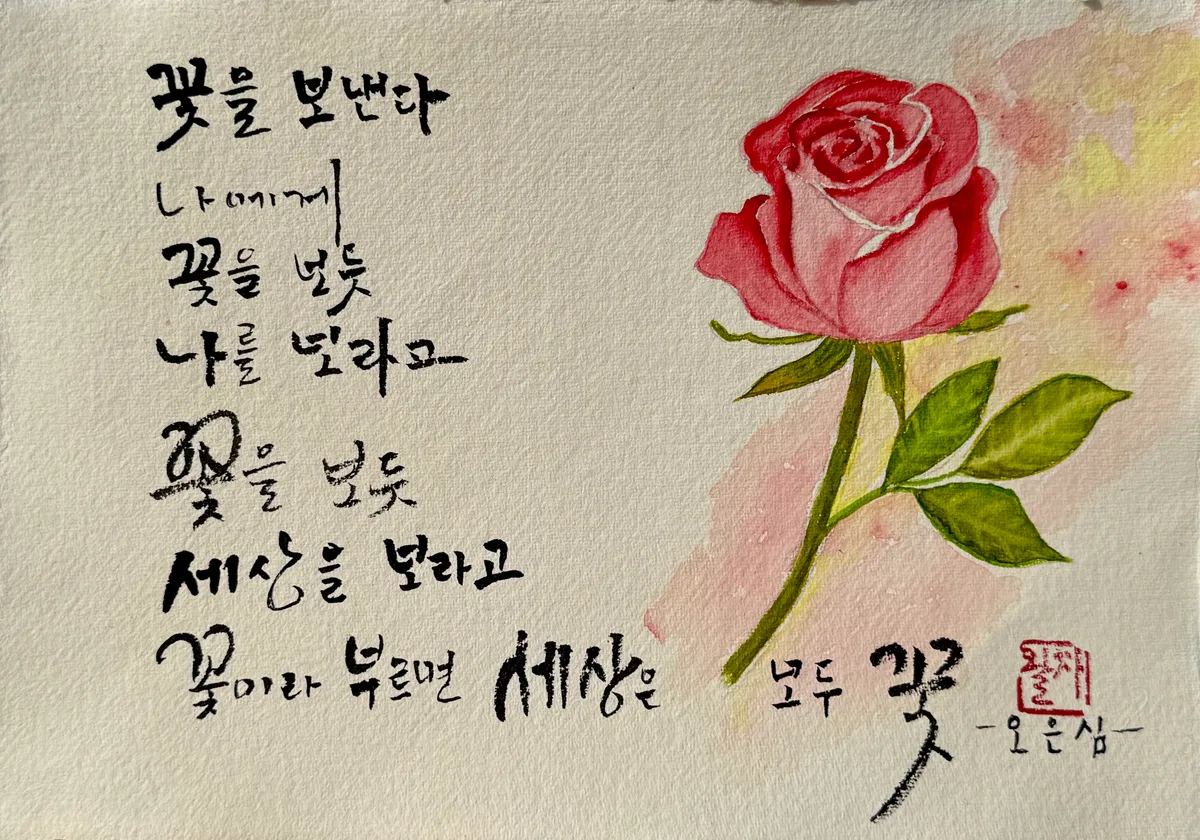 꽃을 보낸다
나에게
꽃을 보듯
나를 보라고
꽃을 보듯
세상을 보라고
꽃이라 부르면 세상은 모두 꽃
-오은심-